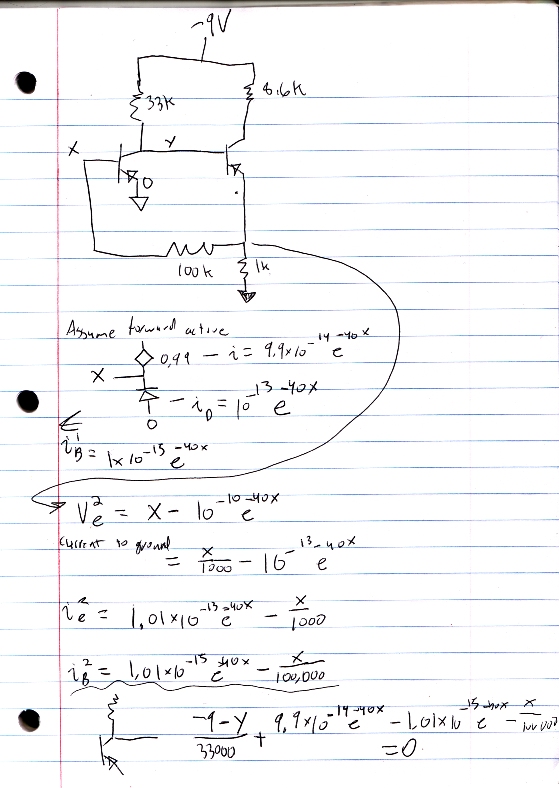 -9V
33K
8.6K
X
Y
0
100k
1k
Assume forward active
0.99 - i = 9.9x10^-14 e^-40x
X
- i_D = 10^-13 e^-40x
0
i_B^1 = 1x10^-15 e^-40x
V_e^2 = X - 10^-10 e^-40x
current to ground = x/1000 - 10^-13 e^-40x
i_e^2 = 1.01x10^-13 e^-40x - x/1000
i_B^2 = 1.01x10^-15 e^-40x - x/100,000
-9-Y/33000 + 9.9x10^-14 e^-40x - 1.01x10^-15 e^-40x - x/100000
=0